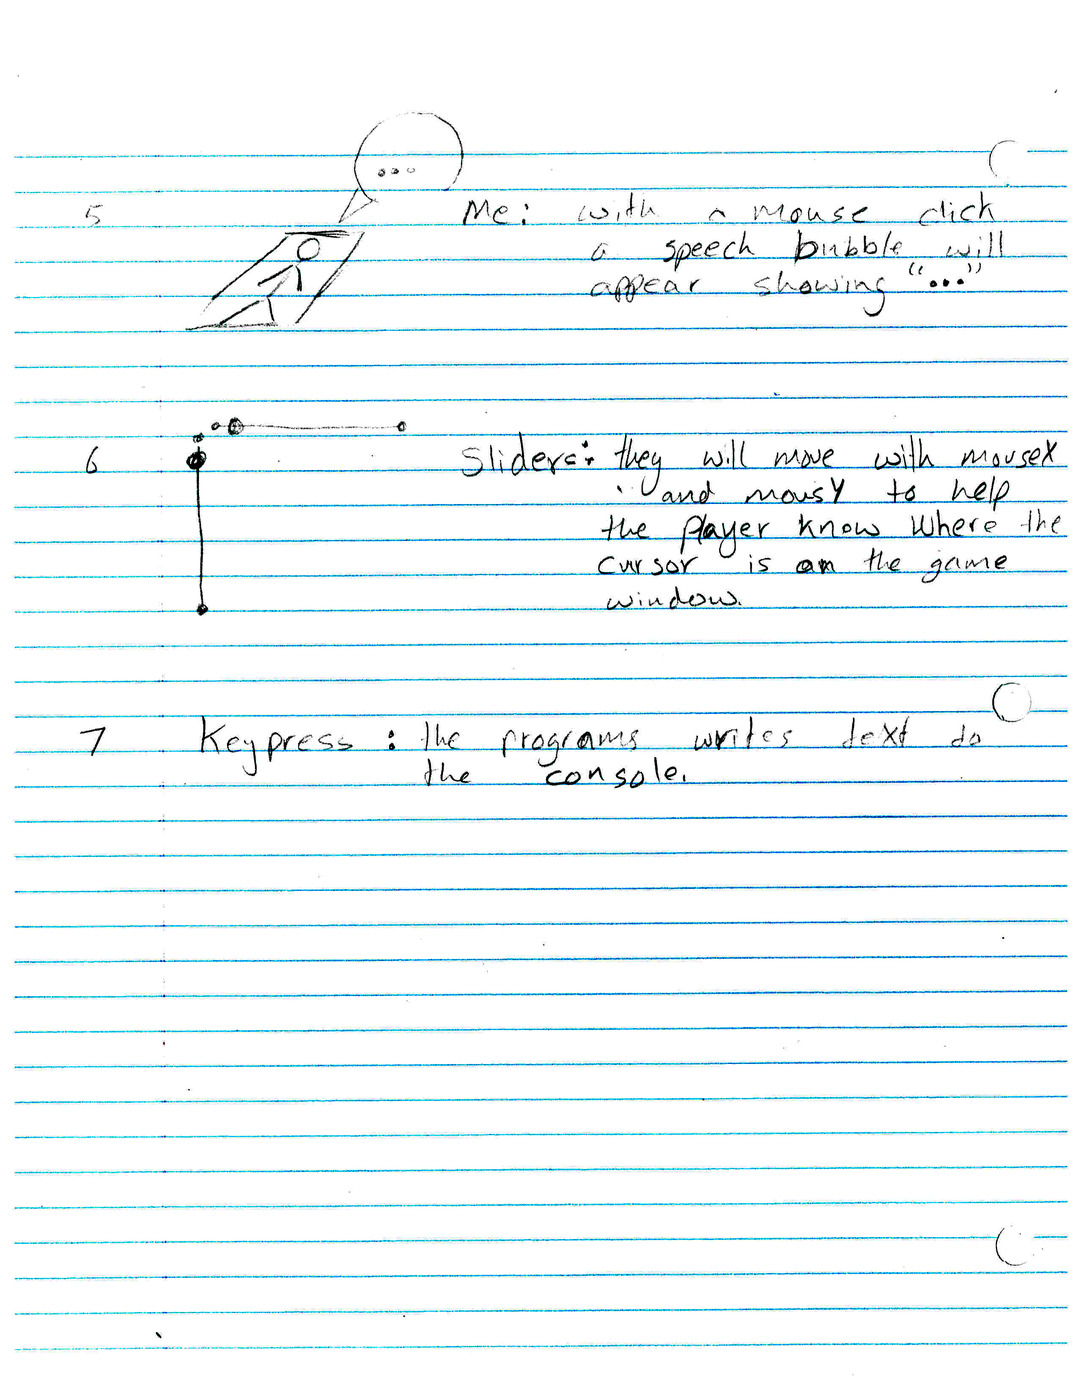 ...
5 Me: with a mouse click
a speech bubble will
appear showing "..."
6 Sliders: they will move with mouseX
and mousY to help
the player know where the
cursor is on the game
window.
7 Keypress: the programs writes text to
the console.